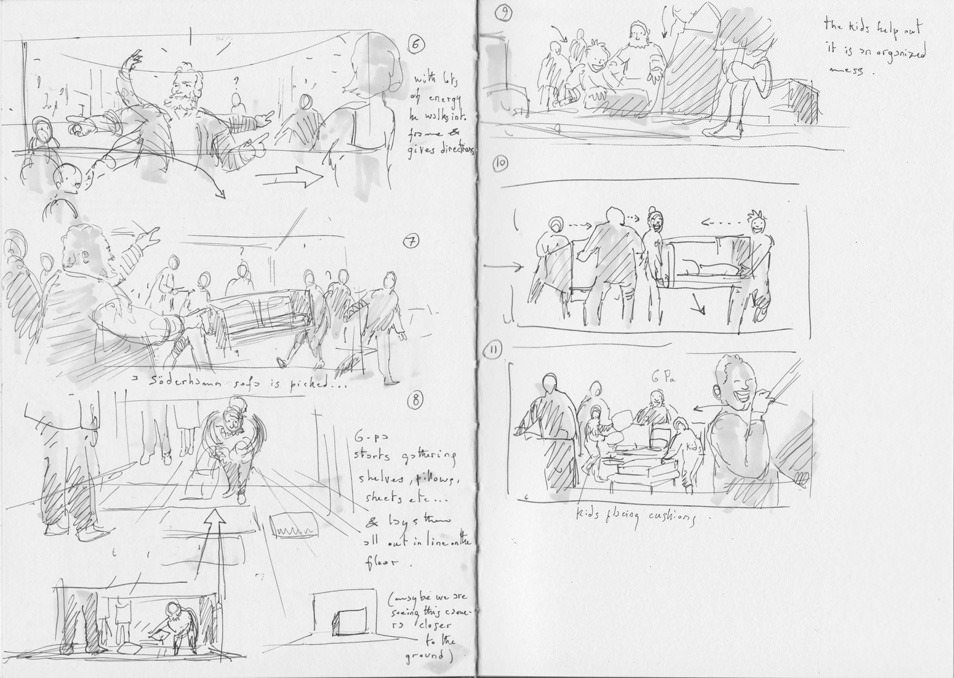 6
with lots
of energy
he walks into
frame &
gives directions
?
?
7
Söderhamn sofa is picked...
8
G-pa
starts gathering
shelves, pillows,
sheets etc...
& lays them
all out in line on the
floor.
(maybe we are
seeing this came-
ra closer
to the
ground)
9
the kids help out
it is an organized
mess.
10
11
G Pa
kid
kids
kids placing cushions.